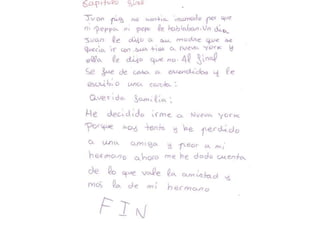 Capitulo final
Juan pig se sentia incomodo por que
ni peppa ni pepe le hablaban. Un día
Juan le dijo a su madre que se
queria ir con sus tios a nueva york y
ella le dijo que no. Al final
Se fue de casa a escondidas y le
escribio una carta:
Querida familia:
He decidido irme a Nueva york
Porque soy tonto y he perdido
a una amiga y peor a mi
hermano ahora me he dado cuenta
de lo que vale la amistad y
mas la de mi hermano
FIN